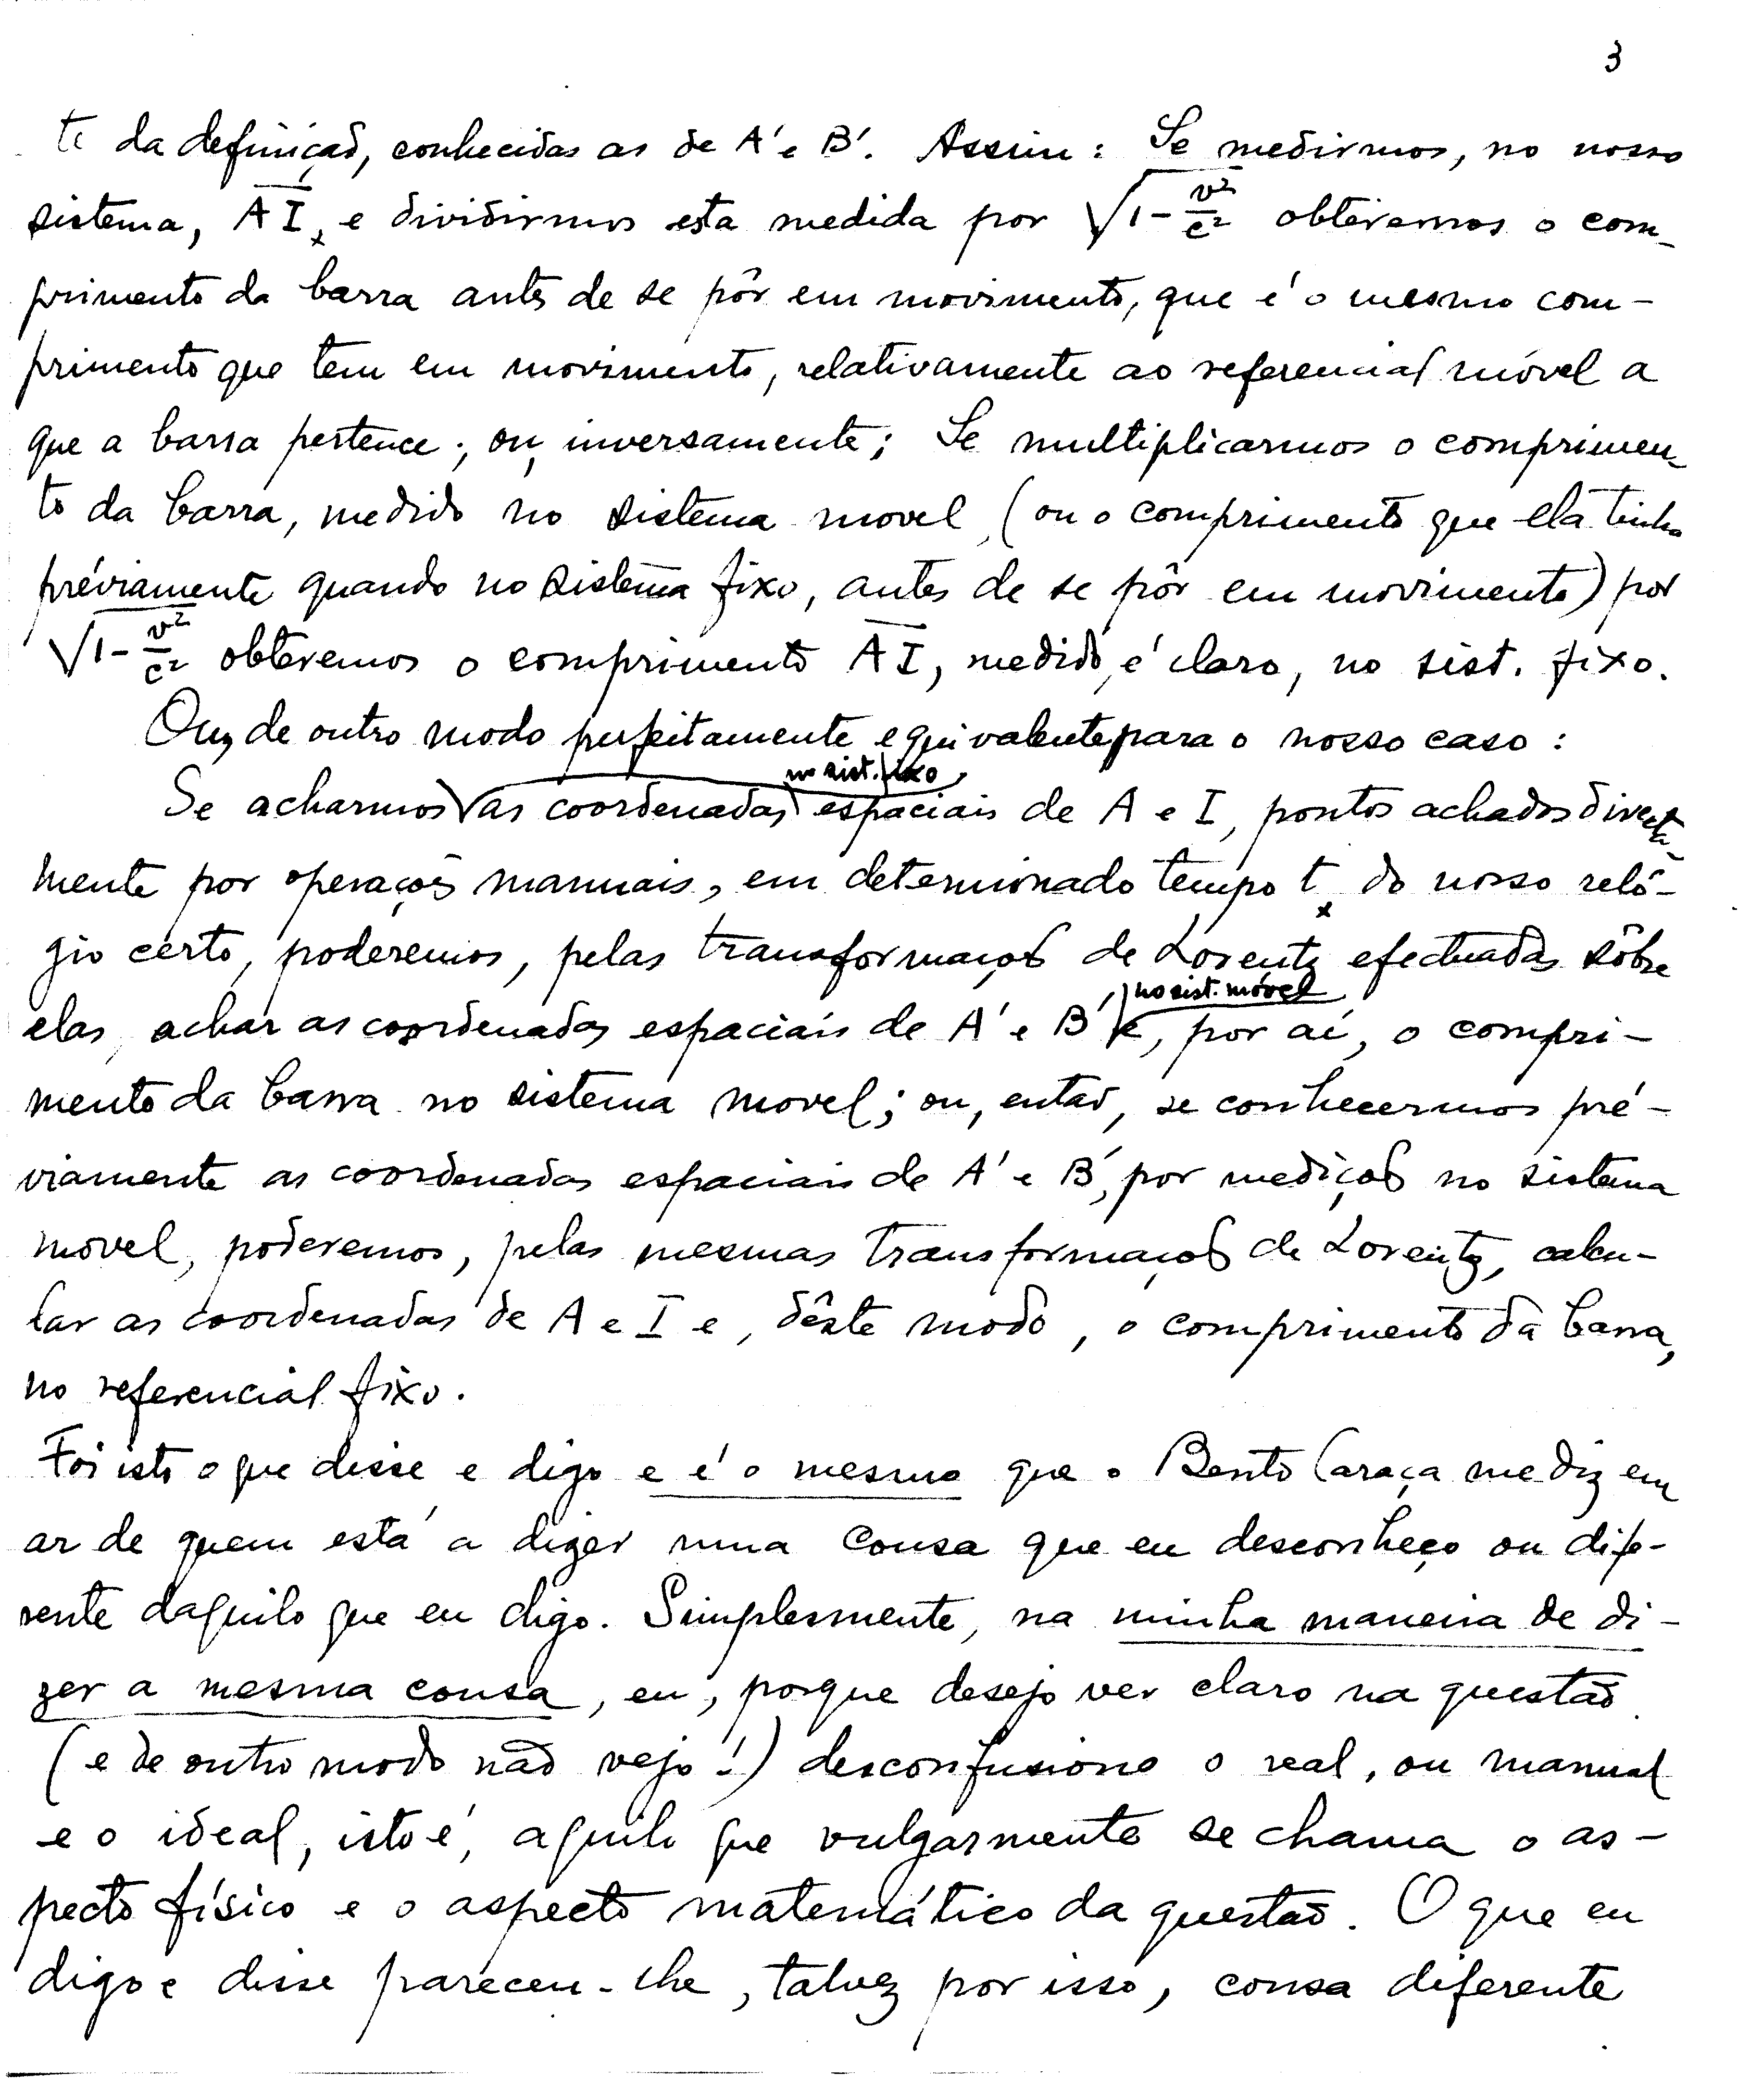 3
te da definição, conhecidas as de A' e B'. Assim: Se medirmos, no nosso
sistema, A̅I̅, e dividirmos esta medida por √1-v²/c² obteremos o com-
primento da barra antes de se pôr em movimento, que é o mesmo com-
primento que tem em movimento, relativamente ao referencial móvel a
que a barra pertence; ou, inversamente; Se multiplicarmos o comprimen-
to da barra, medido no sistema movel, (ou o comprimento que ela tinha
préviamente quando no sistema fixo, antes de se pôr em movimento) por
√1-v²/c² obteremos o comprimento A̅I̅, medido, é claro, no sist. fixo.
Ou, de outro modo perfeitamente equivalente para o nosso caso:
no sist. fixo
Se acharmos as coordenadas espaciais de A e I, pontos achados directa-
mente por operações manuais, em determinado tempo t, do nosso reló-
gio certo, poderemos, pelas transformações de Lorentz efectuadas sôbre
no sist. móvel
elas, achar as coordenadas espaciais de A' e B' e, por aí, o compri-
mento da barra no sistema movel; ou, então, se conhecermos pré-
viamente as coordenadas espaciais de A' e B', por medições no sistema
movel, poderemos, pelas mesmas transformações de Lorentz, calcu-
lar as coordenadas de A e I e, dêste modo, o comprimento da barra,
no referencial fixo.
Foi isto o que disse e digo e é o mesmo que o Bento Caraça me diz em
ar de quem está a dizer uma cousa que eu desconheço ou dife-
rente daquilo que eu digo. Simplesmente, na minha maneira de di-
zer a mesma cousa, eu, porque desejo ver claro na questão
(e de outro modo não vejo!) desconfusiono o real, ou manual
e o ideal, isto é, aquilo que vulgarmente se chama o as-
pecto físico e o aspecto matemático da questão. O que eu
digo e disse pareceu-lhe, talvez por isso, cousa diferente